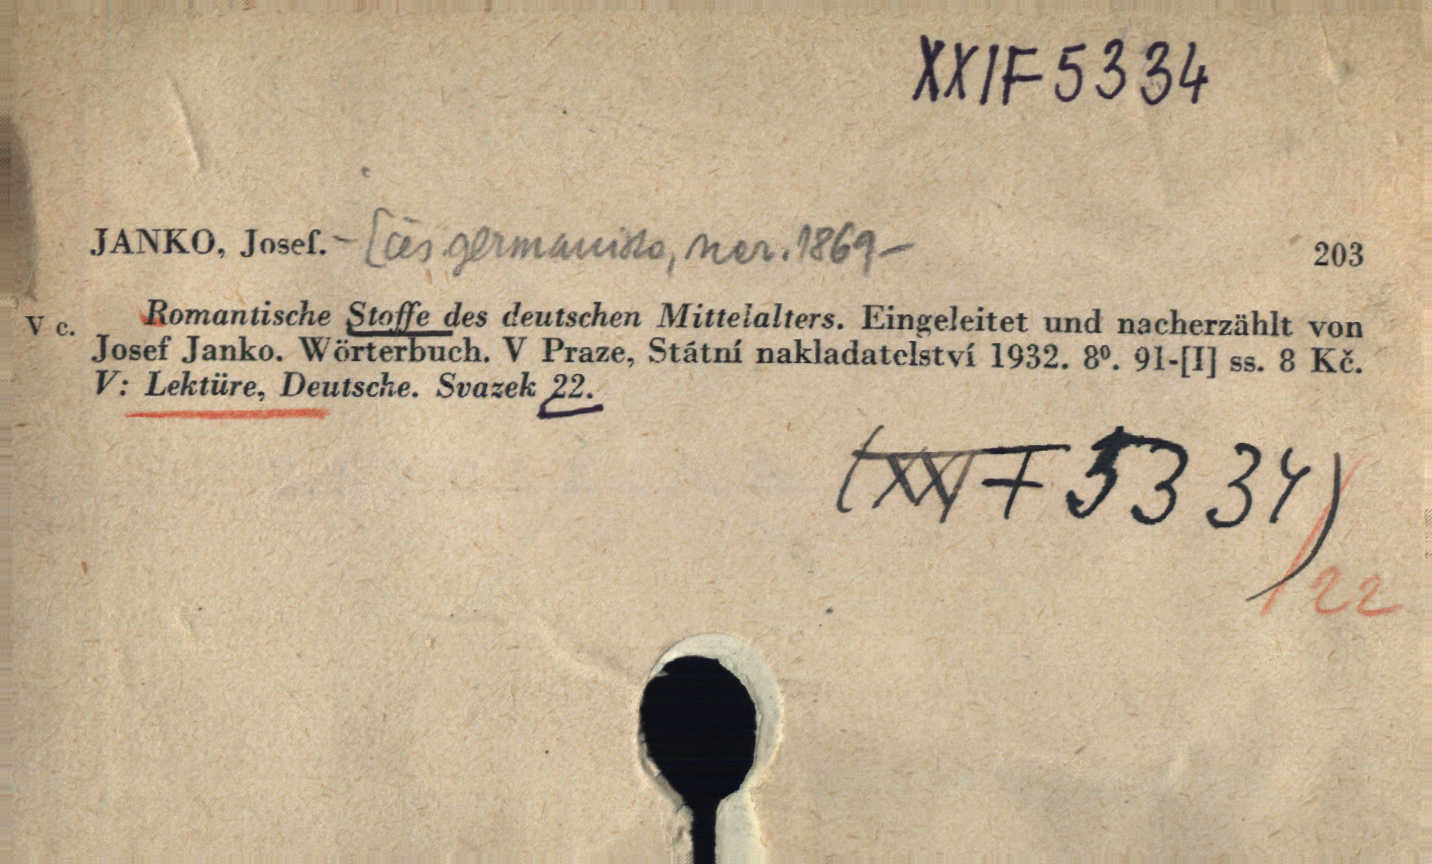 XXIF 5334
JANKO, Josef. – [čes germanista, nar. 1869– 203
V c. Romantische Stoffe des deutschen Mittelalters. Eingeleitet und nacherzählt von
Josef Janko. Wörterbuch. V Praze, Státní nakladatelství 1932. 8⁰. 91-[I] ss. 8 Kč.
V: Lektüre, Deutsche. Svazek 22.
(XXI F 5334)
/22